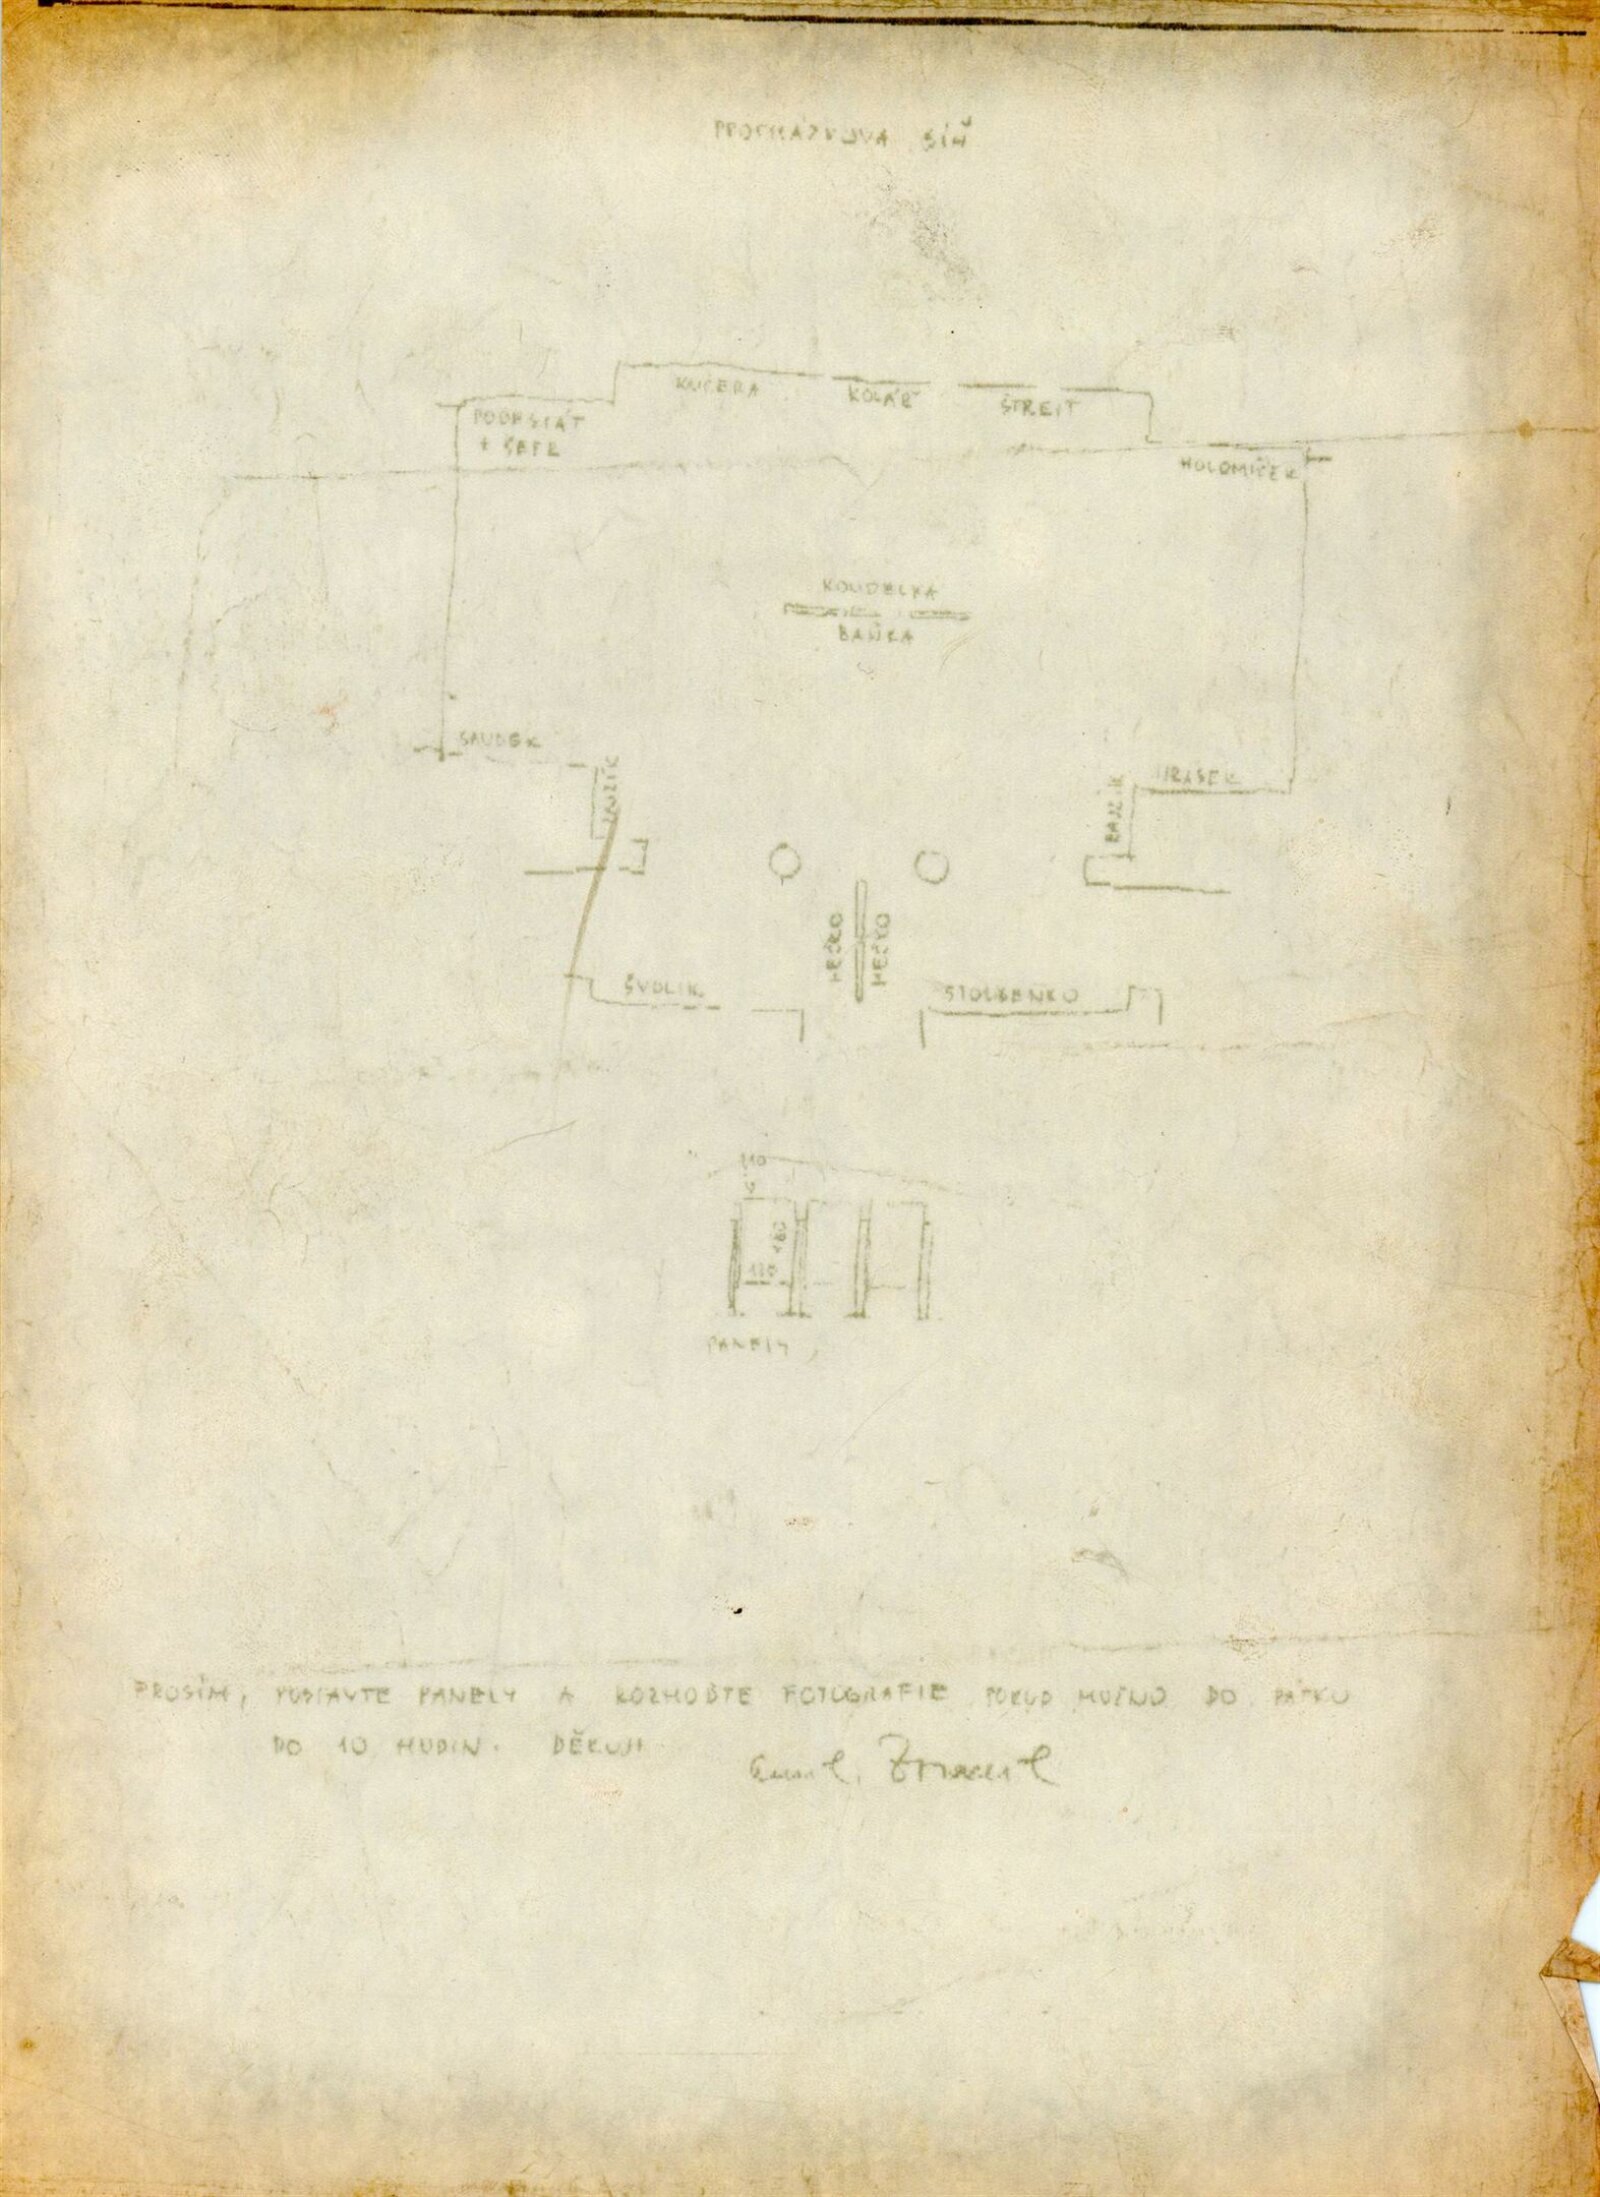 PROCHÁZKOVA SÍŇ
KUČERA
KOLÁŘ
ŠTREIT
PODESTÁT
+ ŠAFR
HOLOMÍČEK
KOUDELKA
BAŇKA
SAUDEK
JIRÁSEK
HEČKO
HEČKO
ŠVOLÍK
STOLBENKO
110
180
PANELY
PROSÍM, POSTAVTE PANELY A ROZHOĎTE FOTOGRAFIE POKUD MOŽNO DO PÁTKU
DO 10 HODIN. DĚKUJI